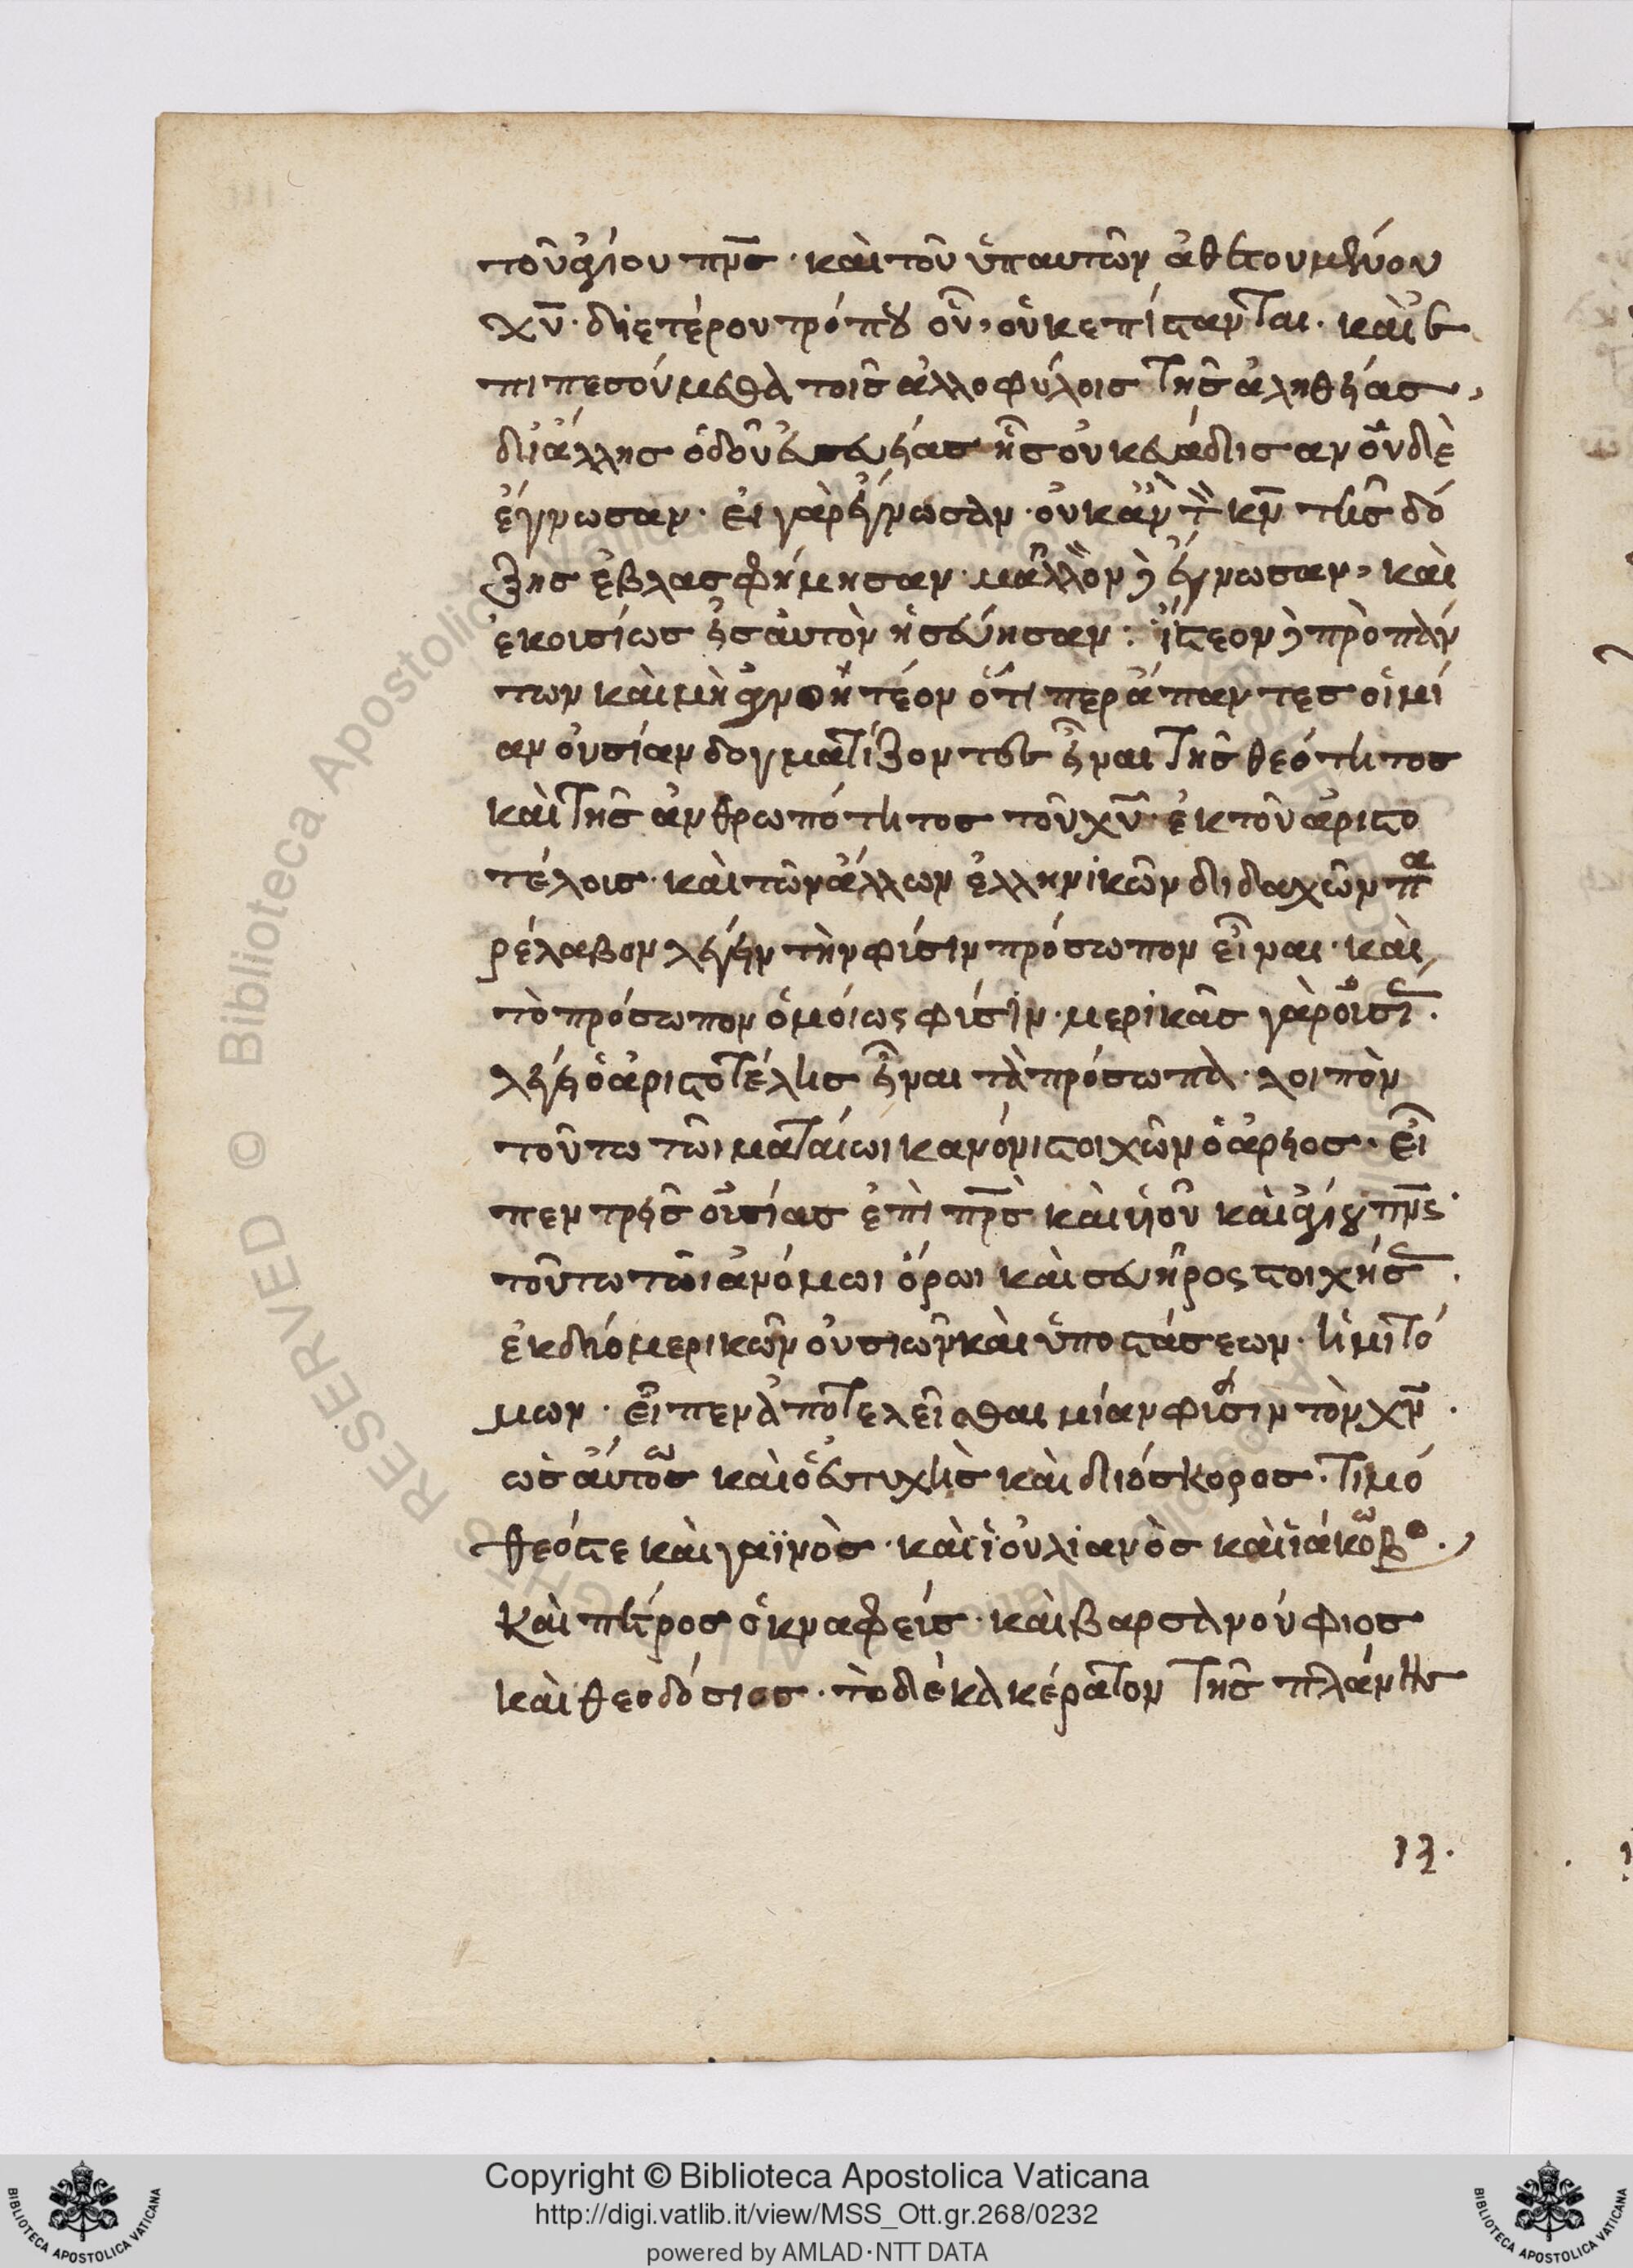 τοῦ ἁγίου πν̅ς · καὶ τοῦ ὑπ αυτῶν ἀθετουμένου
χυ̅ · δι ετέρου τρόπου οὖν, οὐκ επίστανται · καὶ ἐ
πιπεσούμεθα τοῖς ἀλλοφύλοις τῆς ἀληθείας,
δι ἄλλης ὁδοῦ εὐσεβείας ἧς οὐκ εβάδισαν οὐδὲ
ἔγνωσαν · εἰ γὰρ ἔγνωσαν · οὐκ ἂν τὸν κν̅ τῆς δό
ξης ἐβλασφήμησαν · μᾶλλον δὲ ἔγνωσαν, καὶ
ἑκουσίως εἰς ἀυτὸν ἠσέβησαν : ἰστέον δὲ πρὸ πάν
των καὶ μὴ ἀγνοητέον ὅτιπερ ἅπαντες οἱ μί
αν οὐσίαν δογματίζοντες εἶναι τῆς θεότητος
καὶ τῆς ἀνθρωπότητος τοῦ χυ̅ · ἐκ τοῦ ἀριστο
τέλοις · καὶ τῶν ἄλλων ἑλληνικῶν διδαχῶν πα
ρέλαβον λέγειν τὴν φύσιν πρόσωπον εἶναι · καὶ
τὸ πρόσωπον ὁμοίως φύσιν · μερικὰς γὰρ οὐσί ·
λέγει ὁ ἀριστοτέλης εἶναι τὰ πρόσωπα · λοιπὸν
τούτω τῶι ματαίωι κανόνι στοιχῶν ὁ άρειος · εἶ
πεν τρεῖς οὐσίας ἐπὶ πρ̅ς καὶ ὑιοῦ καὶ ἁγίου πν̅ς ·
τούτω τῶι ἀνόμωι ὅρωι καὶ σευῆρος στοιχήσ ·
ἐκ δύο μερικῶν οὐσιῶν καὶ ὑποστάσεων · ἡμιτό
μων · εἶπεν ἀποτελεῖσθαι μίαν φύσιν τὸν χν̅ ·
ὡσἀύτως καὶ ὁ ἐυτυχὴς καὶ διόσκορος · τιμό
θεός τε καὶ γαϊνὸς · καὶ ϊουλιανὸς καὶ ϊάκωβο ·
καὶ πέτρος ὁ κναφεύς · καὶ βαρσανούφιος
καὶ θεοδόσιος · τὸ δεκακέρατον τῆς πλάνης
13.
Copyright © Biblioteca Apostolica Vaticana
http://digi.vatlib.it/view/MSS_Ott.gr.268/0232
powered by AMLAD·NTT DATA